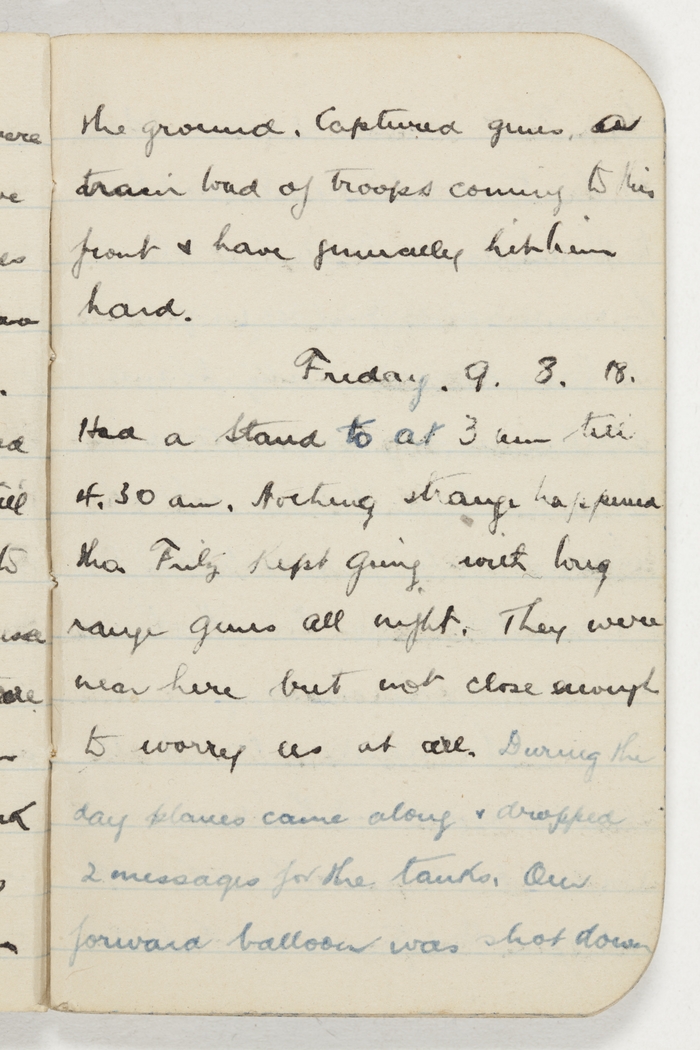 the ground. Captured guns, a
train load of troops coming to this
front & have generally hit him
hard.
Friday. 9. 8. 18.
Had a Stand to at 3 am till
4.30 am. Nothing strange happened
tho Fritz kept going with long
range guns all night. They were
near here but not close enough
to worry us at all. During the
day planes came along & dropped
2 messages for the tanks. Our
forward balloon was shot down